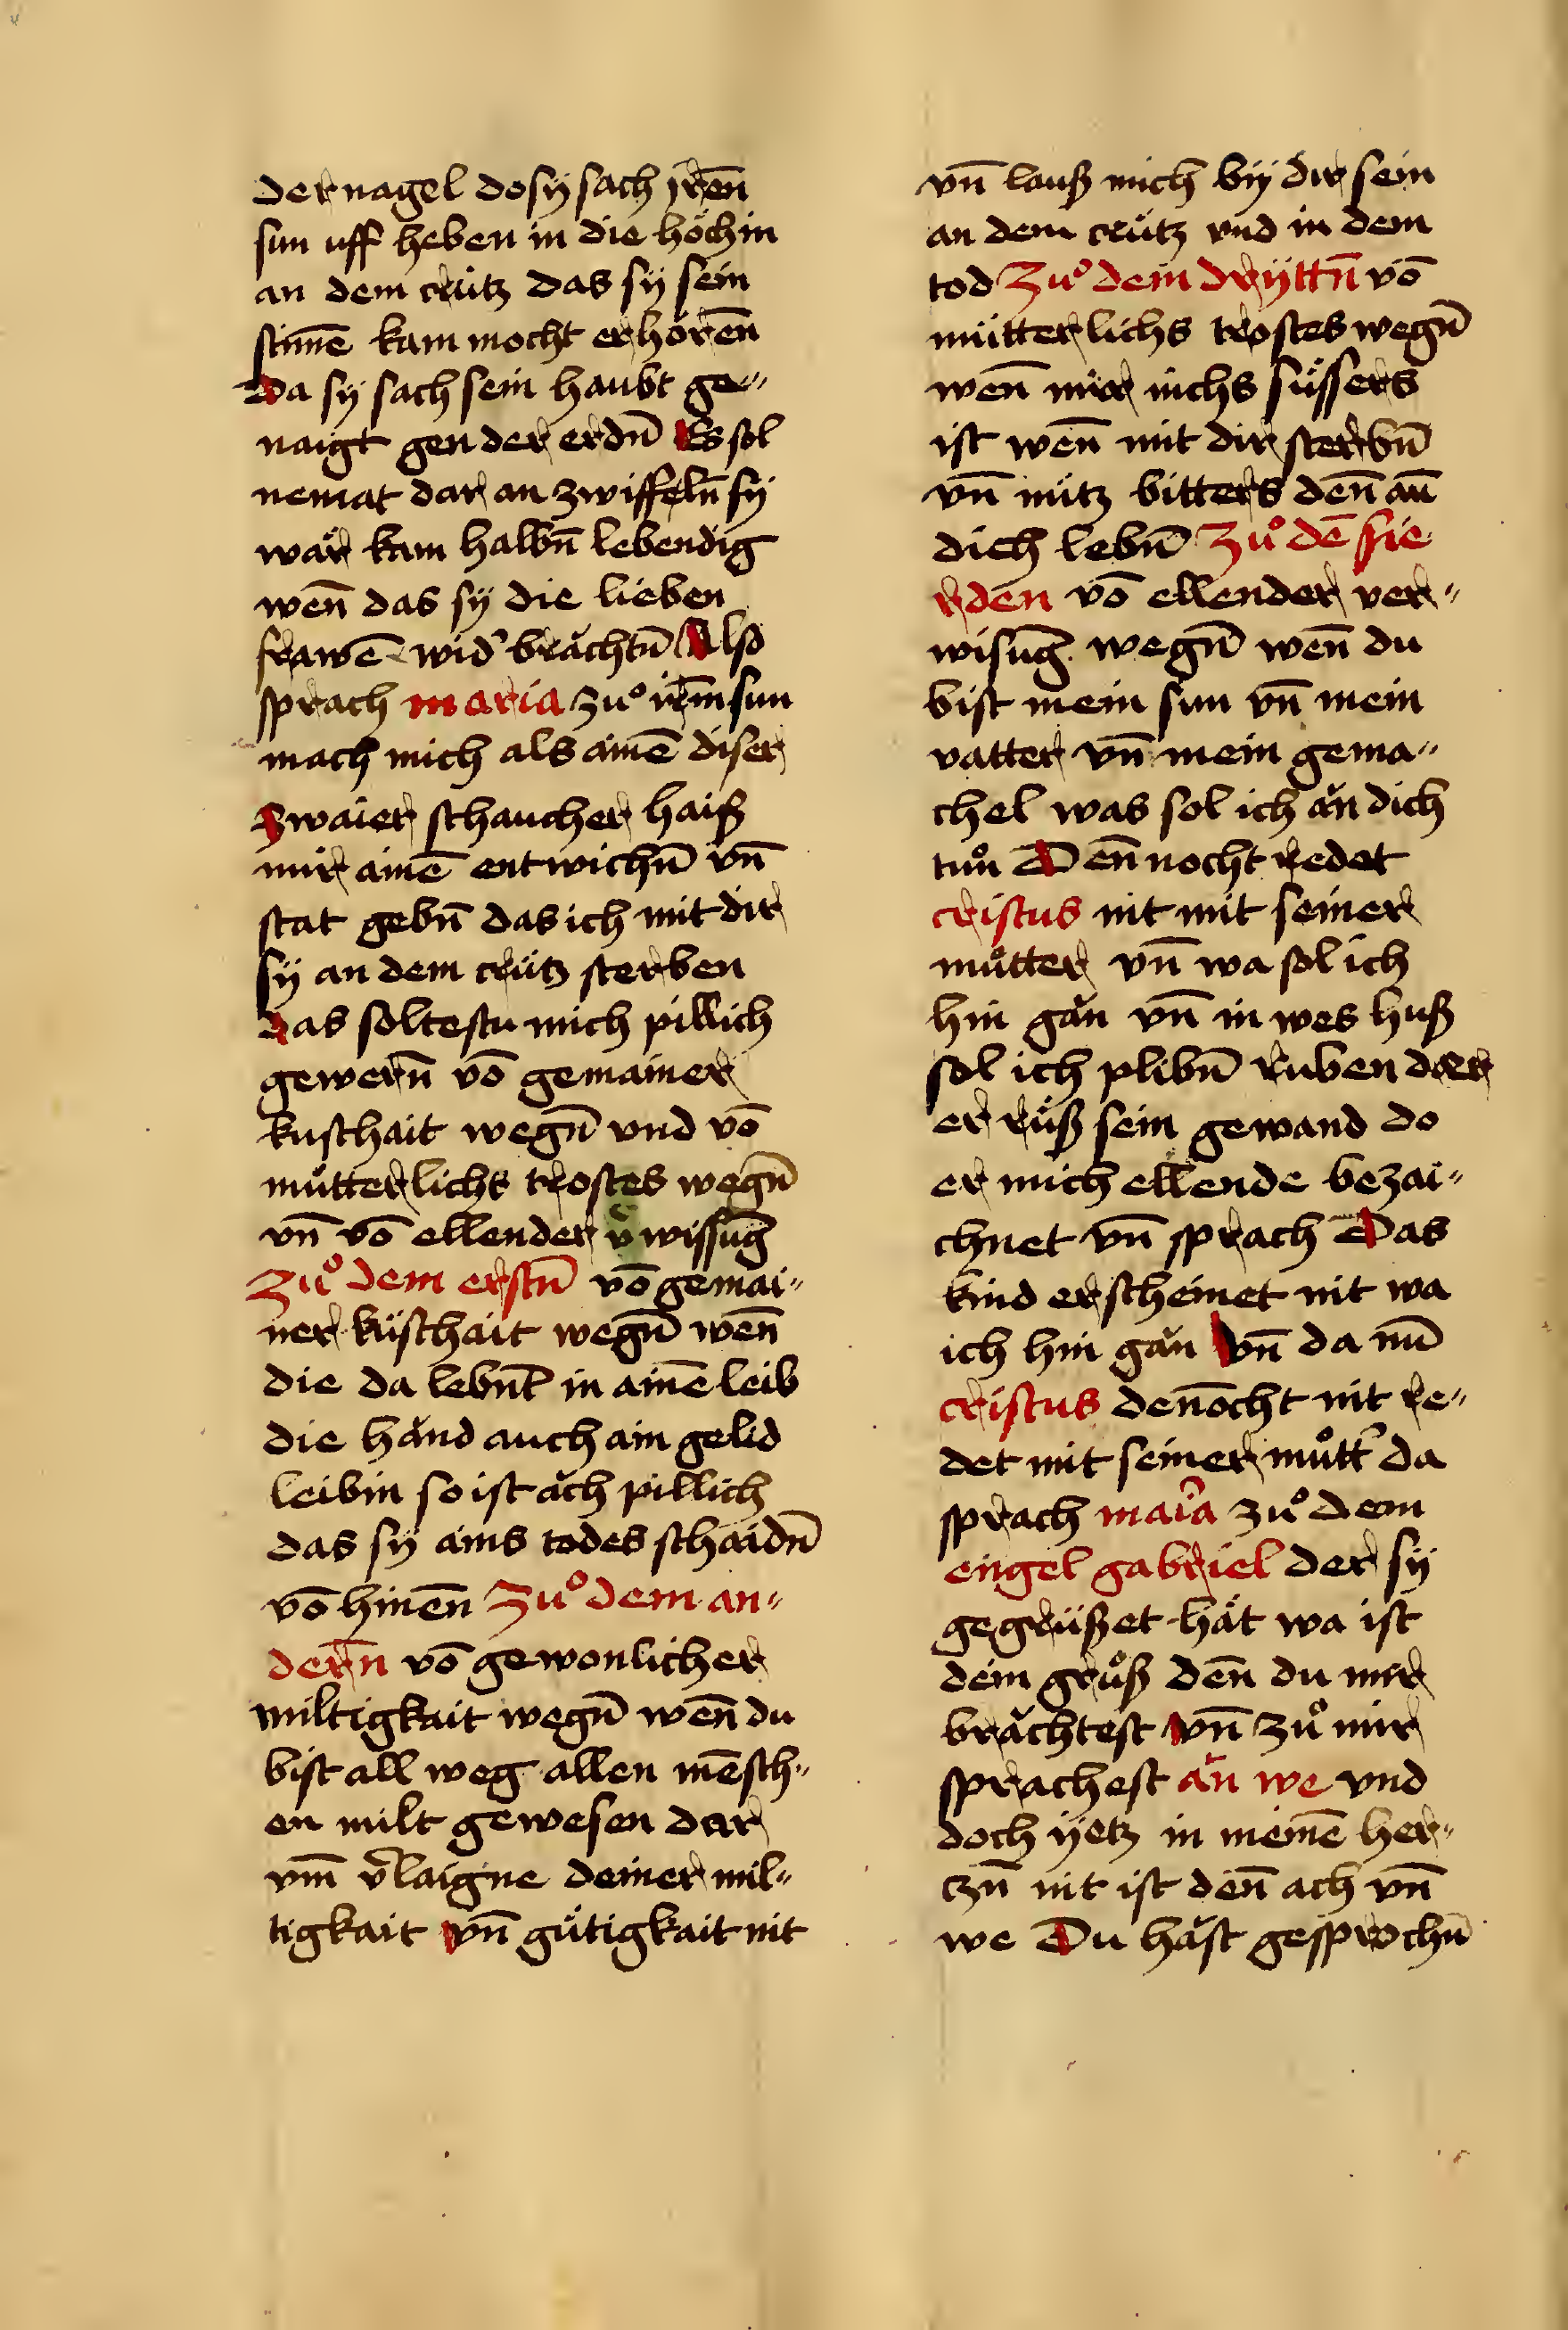 der nagel do sÿ sach jren̄
sun uff heben in die höchin
an dem crütz das sÿ sein
stim̄e kam mocht erhören̄
da sÿ sach sein haubt ge-
naigt gen der erdn̄ Es sol
nemat dar an zwiffeln̄ sÿ
wär kam halbn̄ lebendig
wen̄ das sÿ die lieben
frawē widʼ brǎchtn̄ Also
sprach maria zuͦ irem̄ sun
mach mich als ainē diser
zwaier schaucher haiß
mir ainē entwichn̄ vn̄
stat gebn̄ das ich mit dir
sÿ an dem crütz sterben
das soltestu mich pillich
gewern̄ vō gemainer
kuschait wegn̄ vnd vō
mütterlichs trostes wegn̄
vn̄ vō ellender v̌wissuḡ
Zuͦ dem erstn̄ vō gemai-
ner küschait wegn̄ wen̄
die da lebnt̄ in ainē leib
die hǎnd auch ain gelid
leibin so ist ǎch pillich
das sÿ ains todes schaidn̄
vō hinen̄ Zuͦ dem an-
dern̄ vō gewonlicher
miltigkait wegn̄ wen̄ du
bist all weg allen mēsch-
en milt gewesen dar
vm̄ v̌laigne deiner mil-
tigkait vn̄ gütigkait nit
vn̄ lauß mich bÿ dir sein
an dem crütz vnd in dem
tod Zuͦ dem drÿttn̄ vō
mütterlichs trostes wegn̄
wen̄ mir nichs süssers
ist wen̄ mit dir sterbn̄
vn̄ nütz bitters den̄ an̄
dich lebn̄ Zuͦ dē fie
rden vō ellender ver-
wisuḡ wegn̄ wen̄ du
bist mein sun vn̄ mein
vatter vn̄ mein gema-
chel was sol ich ǎn dich
tuͦn Den̄nocht redet
cristus nit mit seiner
muͦtter vn̄ wa sol ich
hin gǎn vn̄ in wes huß
sol ich plibn̄ Ruben der
er rüß sein gewand do
er mich ellende bezai-
chnet vn̄ sprach Das
kind erscheinet nit wa
ich hin gǎn vn̄ da nū
cristus denōcht nit re-
det mit seiner muͦttʼ da
sprach maiʼa zuͦ dem
engel gabriel der sÿ
gegrüßet hät wa ist
dein gruͦß den̄ du mir
brǎchtest vn̄ zuͦ mir
sprachest ǎn we vnd
doch ÿetz in meinē her-
czn̄ nit ist den̄ ach vn̄
we Du hǎst gesprochn̄